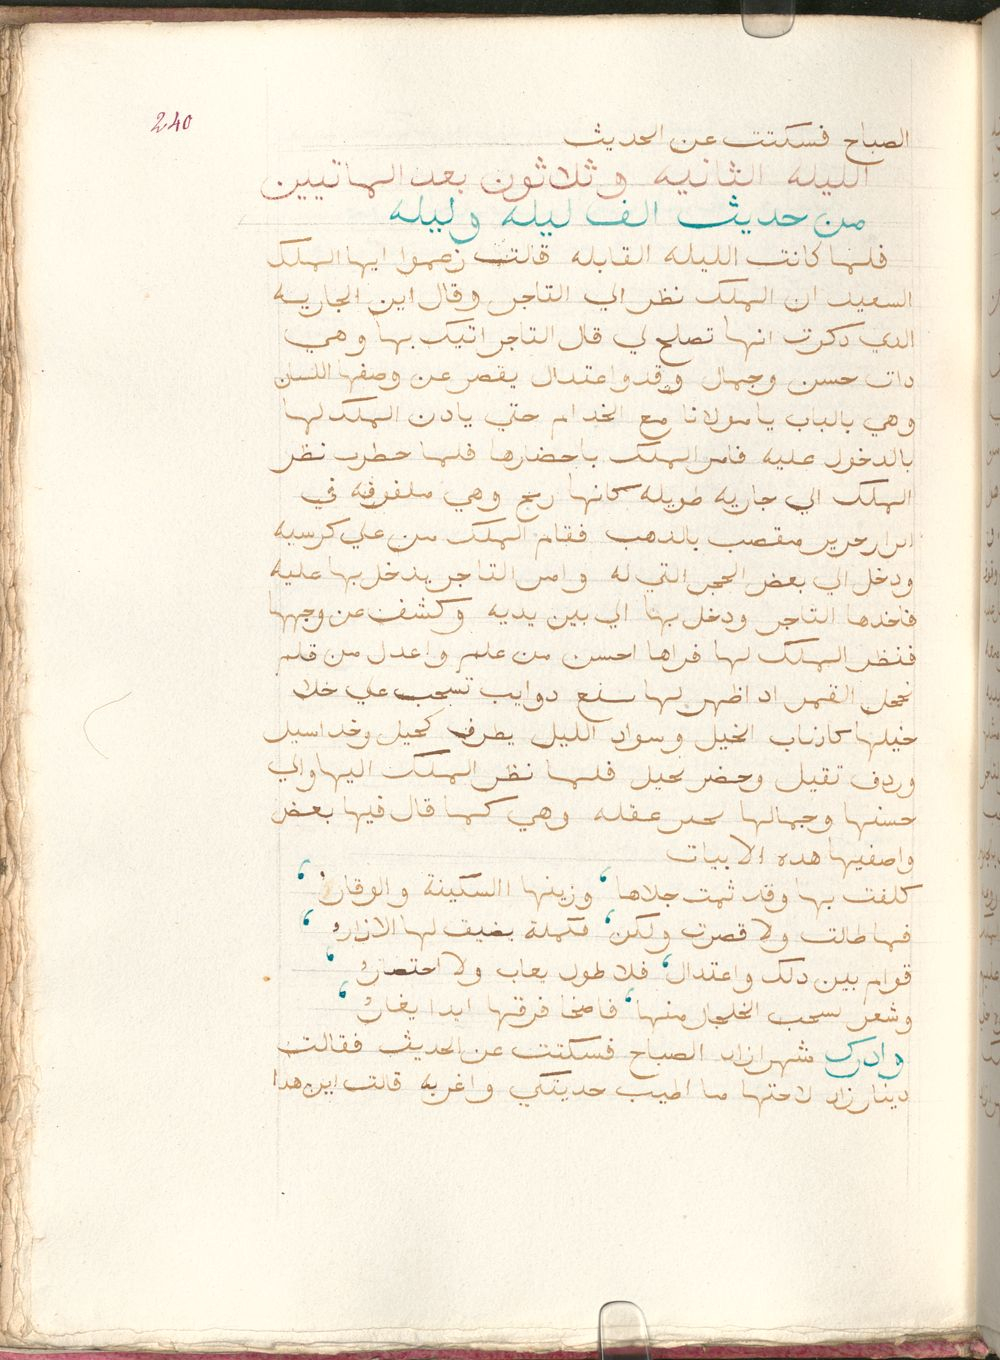 240
الصباح فسكتت عن الحديث
الليله الثانيه وثلاثون بعد الماتيين
من حديث الف ليله وليله
فلما كانت الليله القابله قالت زعموا ايها الملك
السعيد ان الملك نظر الي التاجر وقال اين الجاريه
الدي دكرت انها تصلح لي قال التاجر اتيك بها وهي
دات حسن وجمال وقد واعتدال يقصر عن وصفها اللسان
وهي بالباب يا مولانا مع الخدام حتي يادن الملك لها
بالدخول عليه فامر الملك باحضارها فلما حطرت نظر
الملك الي جاريه طويله كانها رمح وهي ملفوفه في
ازار حرير مقصب بالذهب فقام الملك من علي كرسيه
ودخل الي بعض الحجر التي له وامر التاجر يدخل بها عليه
فاخدها التاجر ودخل بها الي بين يديه وكشف عن وجهها
فنظر الملك لها فراها احسن من علم واعدل من قلم
تخجل القمر اد اظهر لها سبع دوايب تسحب علي خلا
خيلها كادناب الخيل وسواد الليل بطرف كحيل وخد اسيل
وردف تقيل وخصر نحيل فلما نظر الملك اليها والي
حسنها وجمالها تحير عقله وهي كما قال فيها بعض
واصفيها هده الابيات
كلفت بها وقد تمت حلاها ، وزينها االسكينة والوقار ،
فما طالت ولا قصرت ولكن ، مكملة يضيق لها الازار ،
قوام بين دلك واعتدال ، فلا طول يعاب ولا احتصار ،
وشعر يسحب الخلخال منها ، فاضحا فرقها ابدا يغار ،
وادرك شهرازاد الصباح فسكتت عن الحديث فقالت
دينارزاد لاحتها ما اطيب حديتكي واغربه قالت اين هدا